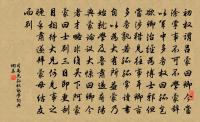 初權謂呂蒙曰卿今當
塗掌事不可不學蒙辭
以軍中多務權曰孤豈
欲卿治經為博士邪但
當涉獵見往事耳卿言
多務孰若孤孤常讀書
自以為大有所益蒙乃
始就學及魯肅過尋陽
與蒙論議大驚曰卿今
者才略非復吳下阿蒙
蒙曰士別三日即更刮
目相待大兄何見事之
晚乎肅遂拜蒙母結友
而別
司馬光孫權勸學